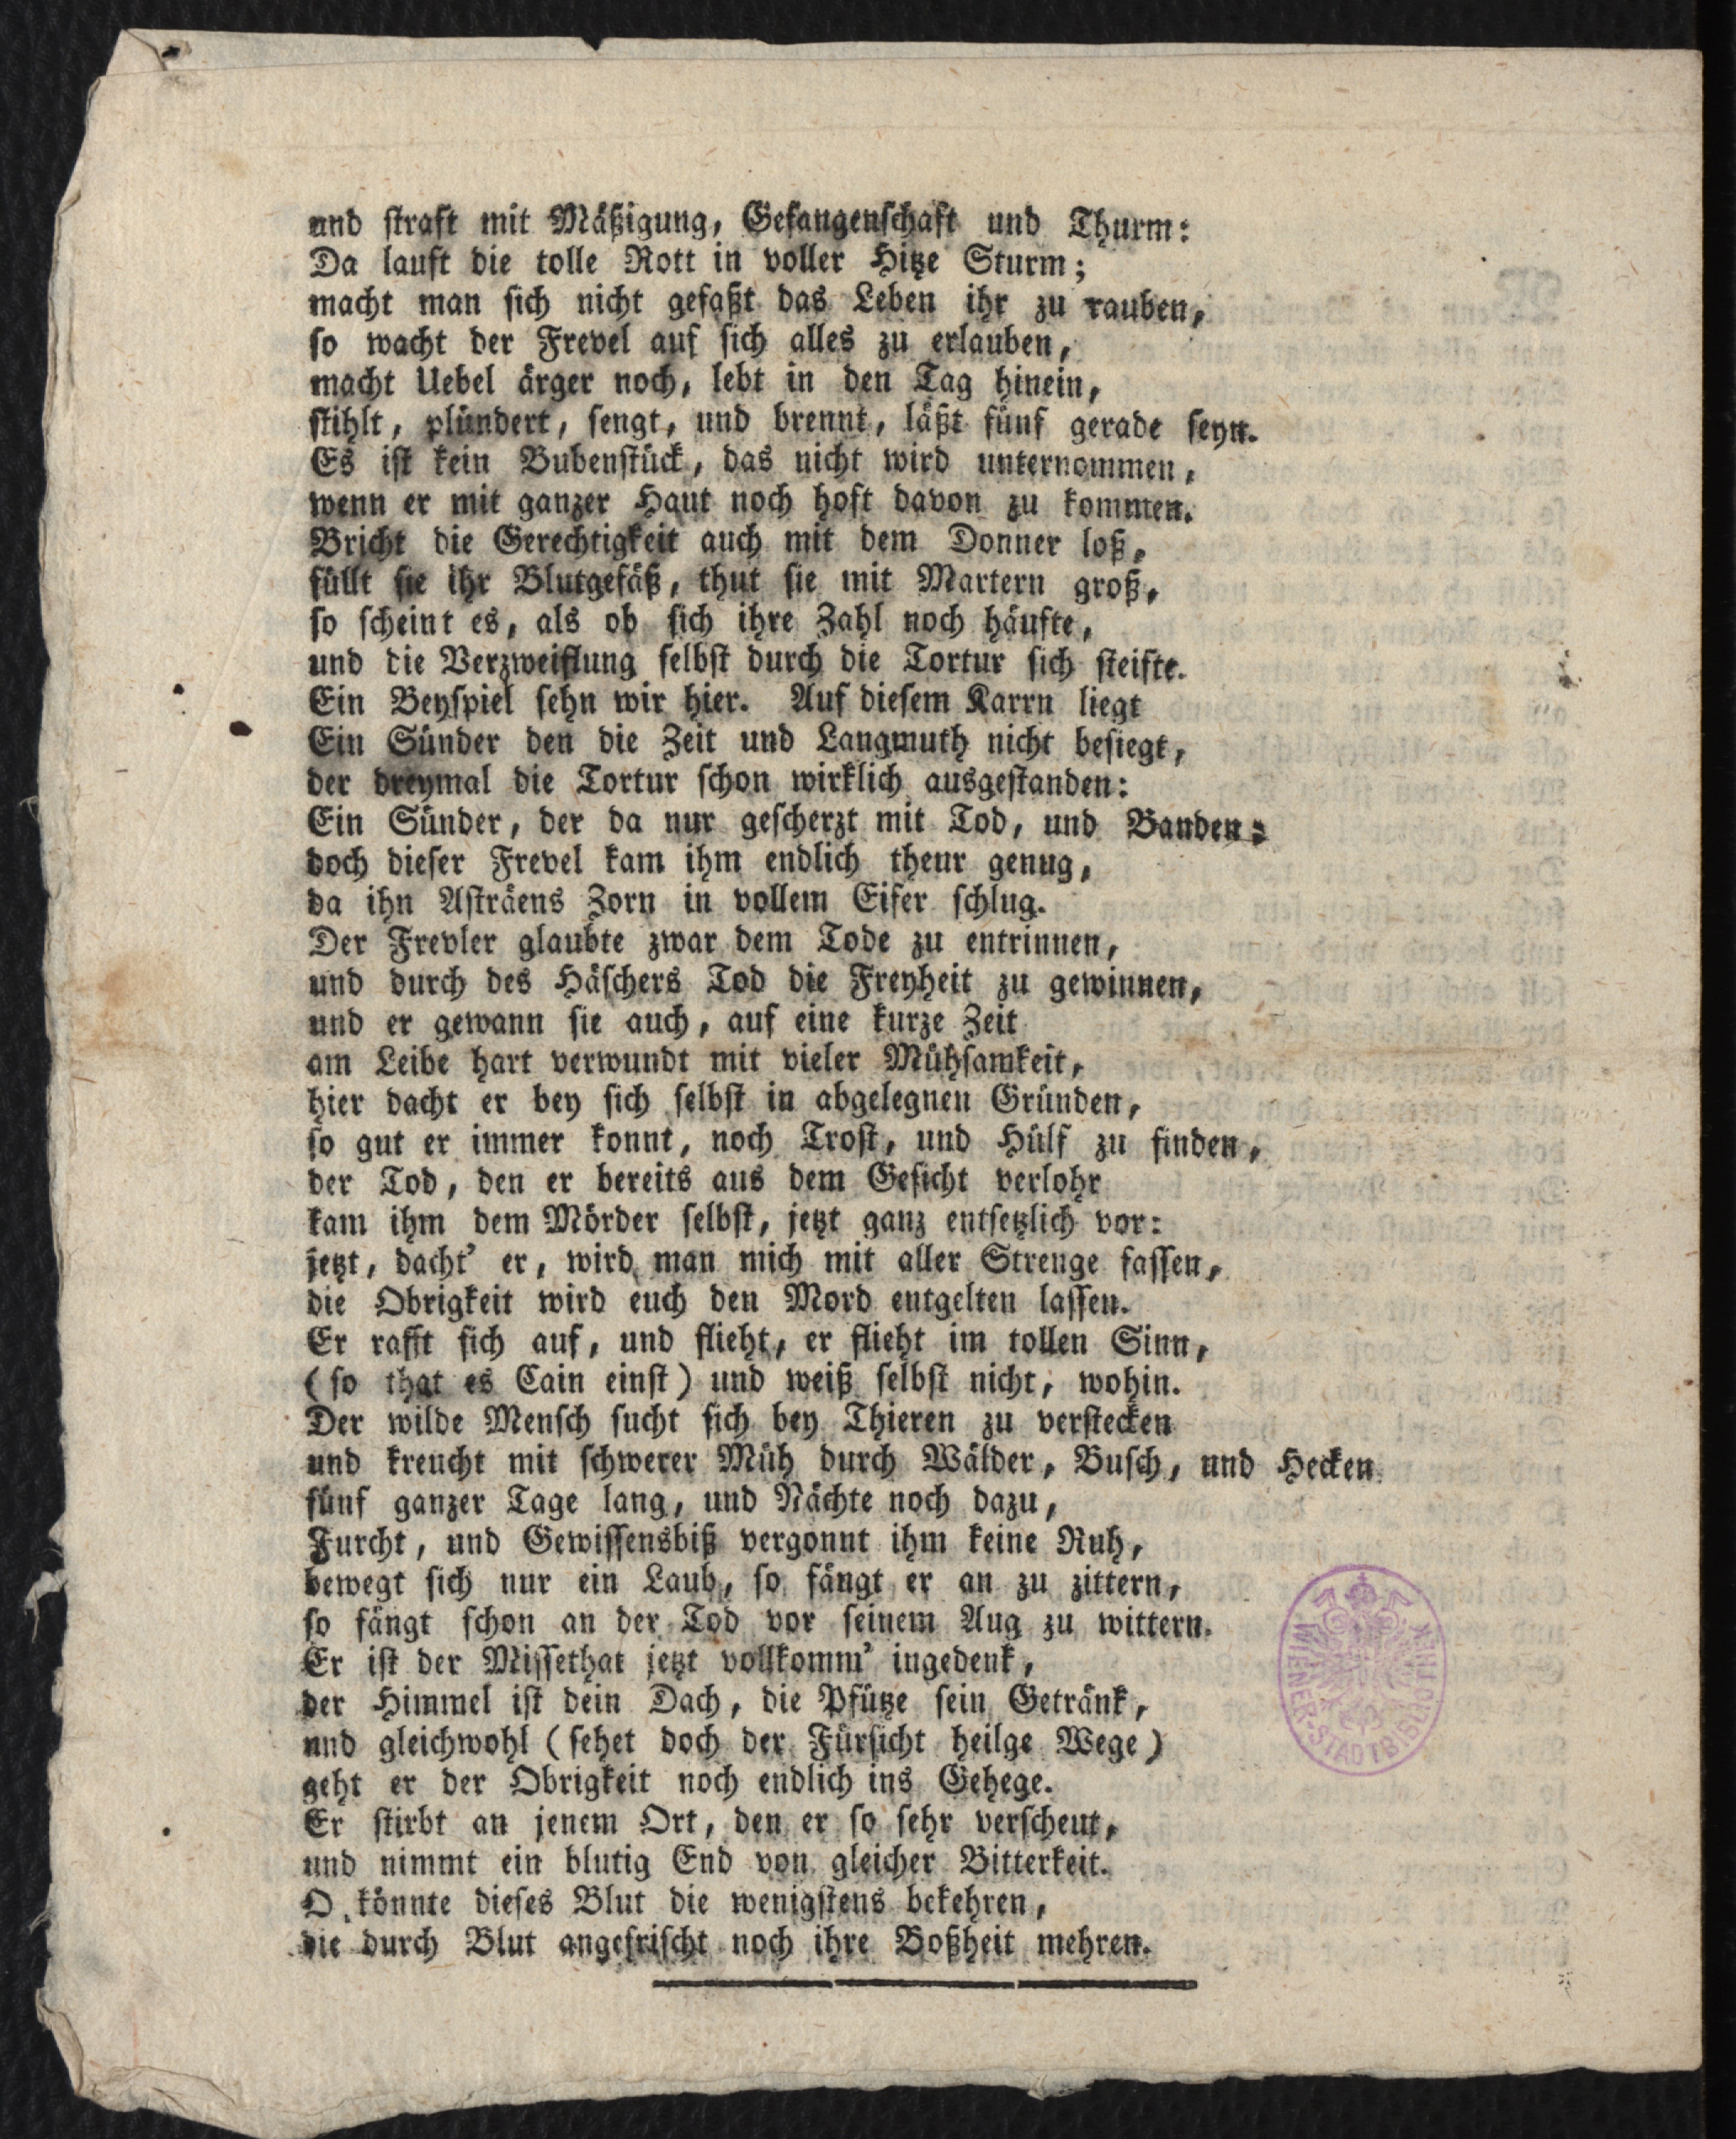 und straft mit Mäßigung, Gefangenschaft und Thurm:
Da lauft die tolle Rott in voller Hitze Sturm;
macht man sich nicht gefaßt das Leben ihr zu rauben,
so wacht der Frevel auf sich alles zu erlauben,
macht Uebel ärger noch, lebt in den Tag hinein,
stihlt, plündert, sengt, und brennt, läßt fünf gerade seyn.
Es ist kein Bubenstück, das nicht wird unternommen,
wenn er mit ganzer Haut noch hoft davon zu kommen.
Bricht die Gerechtigkeit auch mit dem Donner loß,
füllt sie ihr Blutgefäß, thut sie mit Martern groß,
so scheint es, als ob sich ihre Zahl noch häufte,
und die Verzweiflung selbst durch die Tortur sich steifte.
Ein Beyspiel sehn wir hier. Auf diesem Karrn liegt
Ein Sünder den die Zeit und Langmuth nicht besiegt,
der dreymal die Tortur schon wirklich ausgestanden:
Ein Sünder, der da nur gescherzt mit Tod, und Banden:
doch dieser Frevel kam ihm endlich theur genug,
da ihn Asträens Zorn in vollem Eifer schlug.
Der Frevler glaubte zwar dem Tode zu entrinnen,
und durch des Häschers Tod die Freyheit zu gewinnen,
und er gewann sie auch, auf eine kurze Zeit
am Leibe hart verwundt mit vieler Mühsamkeit,
hier dacht er bey sich selbst in abgelegnen Gründen,
so gut er immer konnt, noch Trost, und Hülf zu finden,
der Tod, den er bereits aus dem Gesicht verlohr
kam ihm dem Mörder selbst, jetzt ganz entsetzlich vor:
jetzt, dacht' er, wird man mich mit aller Strenge fassen,
die Obrigkeit wird euch den Mord entgelten lassen.
Er rafft sich auf, und flieht, er flieht im tollen Sinn,
(so that es Cain einst) und weiß selbst nicht, wohin.
Der wilde Mensch sucht sich bey Thieren zu verstecken
und kreucht mit schwerer Müh durch Wälder, Busch, und Hecken
fünf ganzer Tage lang, und Nächte noch dazu,
Furcht, und Gewissensbiß vergonnt ihm keine Ruh,
bewegt sich nur ein Laub, so fängt er an zu zittern,
so fängt schon an der Tod vor seinem Aug zu wittern.
Er ist der Missethat jetzt vollkomm' ingedenk,
der Himmel ist dein Dach, die Pfütze sein Getränk,
und gleichwohl (sehet doch der Fürsicht heilge Wege)
geht er der Obrigkeit noch endlich ins Gehege.
Er stirbt an jenem Ort, den er so sehr verscheut,
und nimmt ein blutig End von gleicher Bitterkeit.
O könnte dieses Blut die wenigstens bekehren,
die durch Blut angefrischt noch ihre Boßheit mehren.
WIENER-STADTBIBLIOTHEK